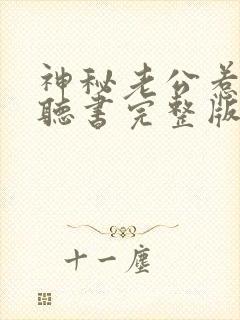 神秘老公惹
聽書完整版
十一塵